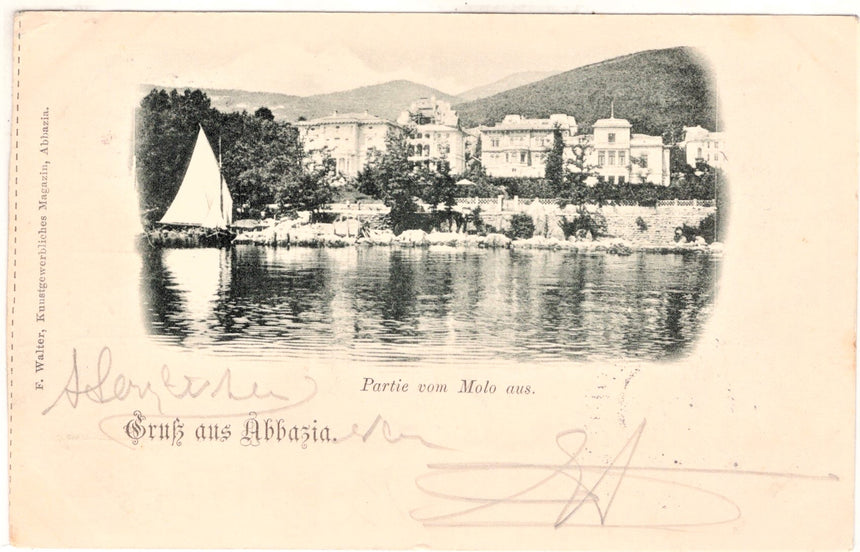 F. Walter, Kunstgewerbliches Magazin, Abbazia.
Partie vom Molo aus.
Gruß aus Abbazia.